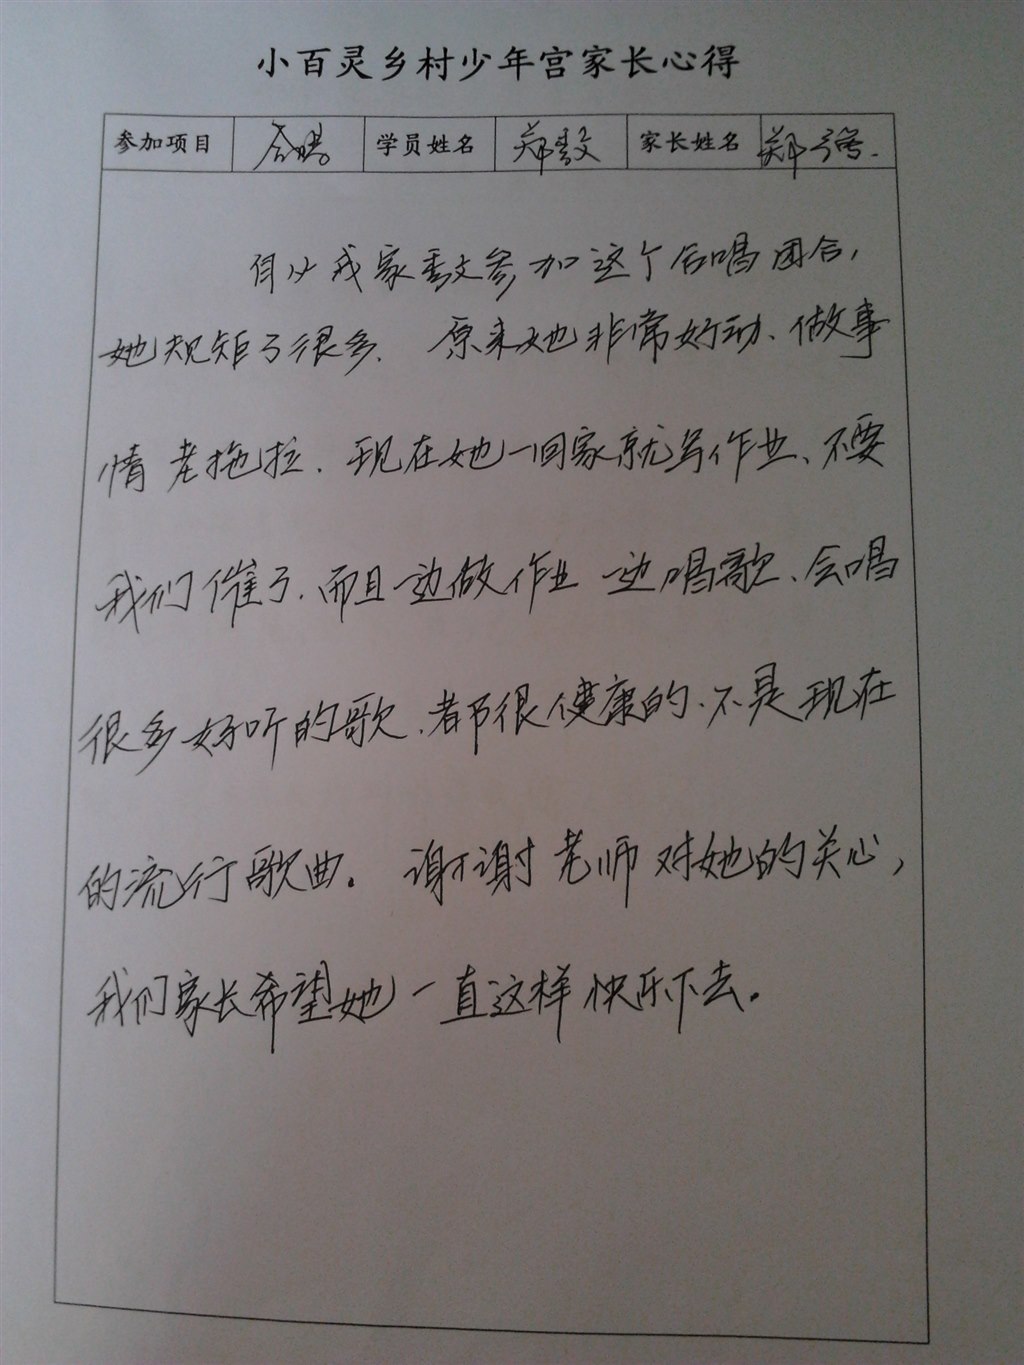 小百灵乡村少年宫家长心得
参加项目 合唱 学员姓名 郑 家长姓名 郑
自从我家参加这个合唱团后，
她规矩了很多.原来她非常好动、做事
情老拖拉.现在她一回家就写作业、不要
我们催了.而且一边做作业一边唱歌、会唱
很多好听的歌.都很健康的.不是现在
的流行歌曲。谢谢老师对她的关心，
我们家长希望她一直这样快乐下去。